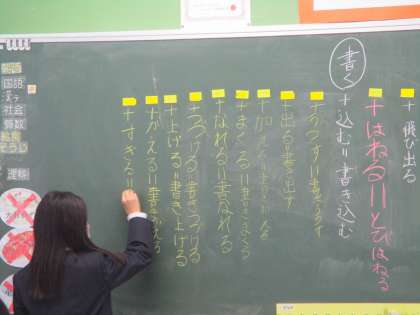 ＋飛び出る
＋はねる＝とびはねる
書く＋込む＝書き込む
＋うつす＝書きうつす
＋出る＝書き出す
＋まくる＝書きまくる
＋なれる＝書きなれる
＋つづける＝書きつづける
＋上げる＝書き上げる
＋かえる＝書きかえる
＋すぎる＝
国語
漢字
社会
算数